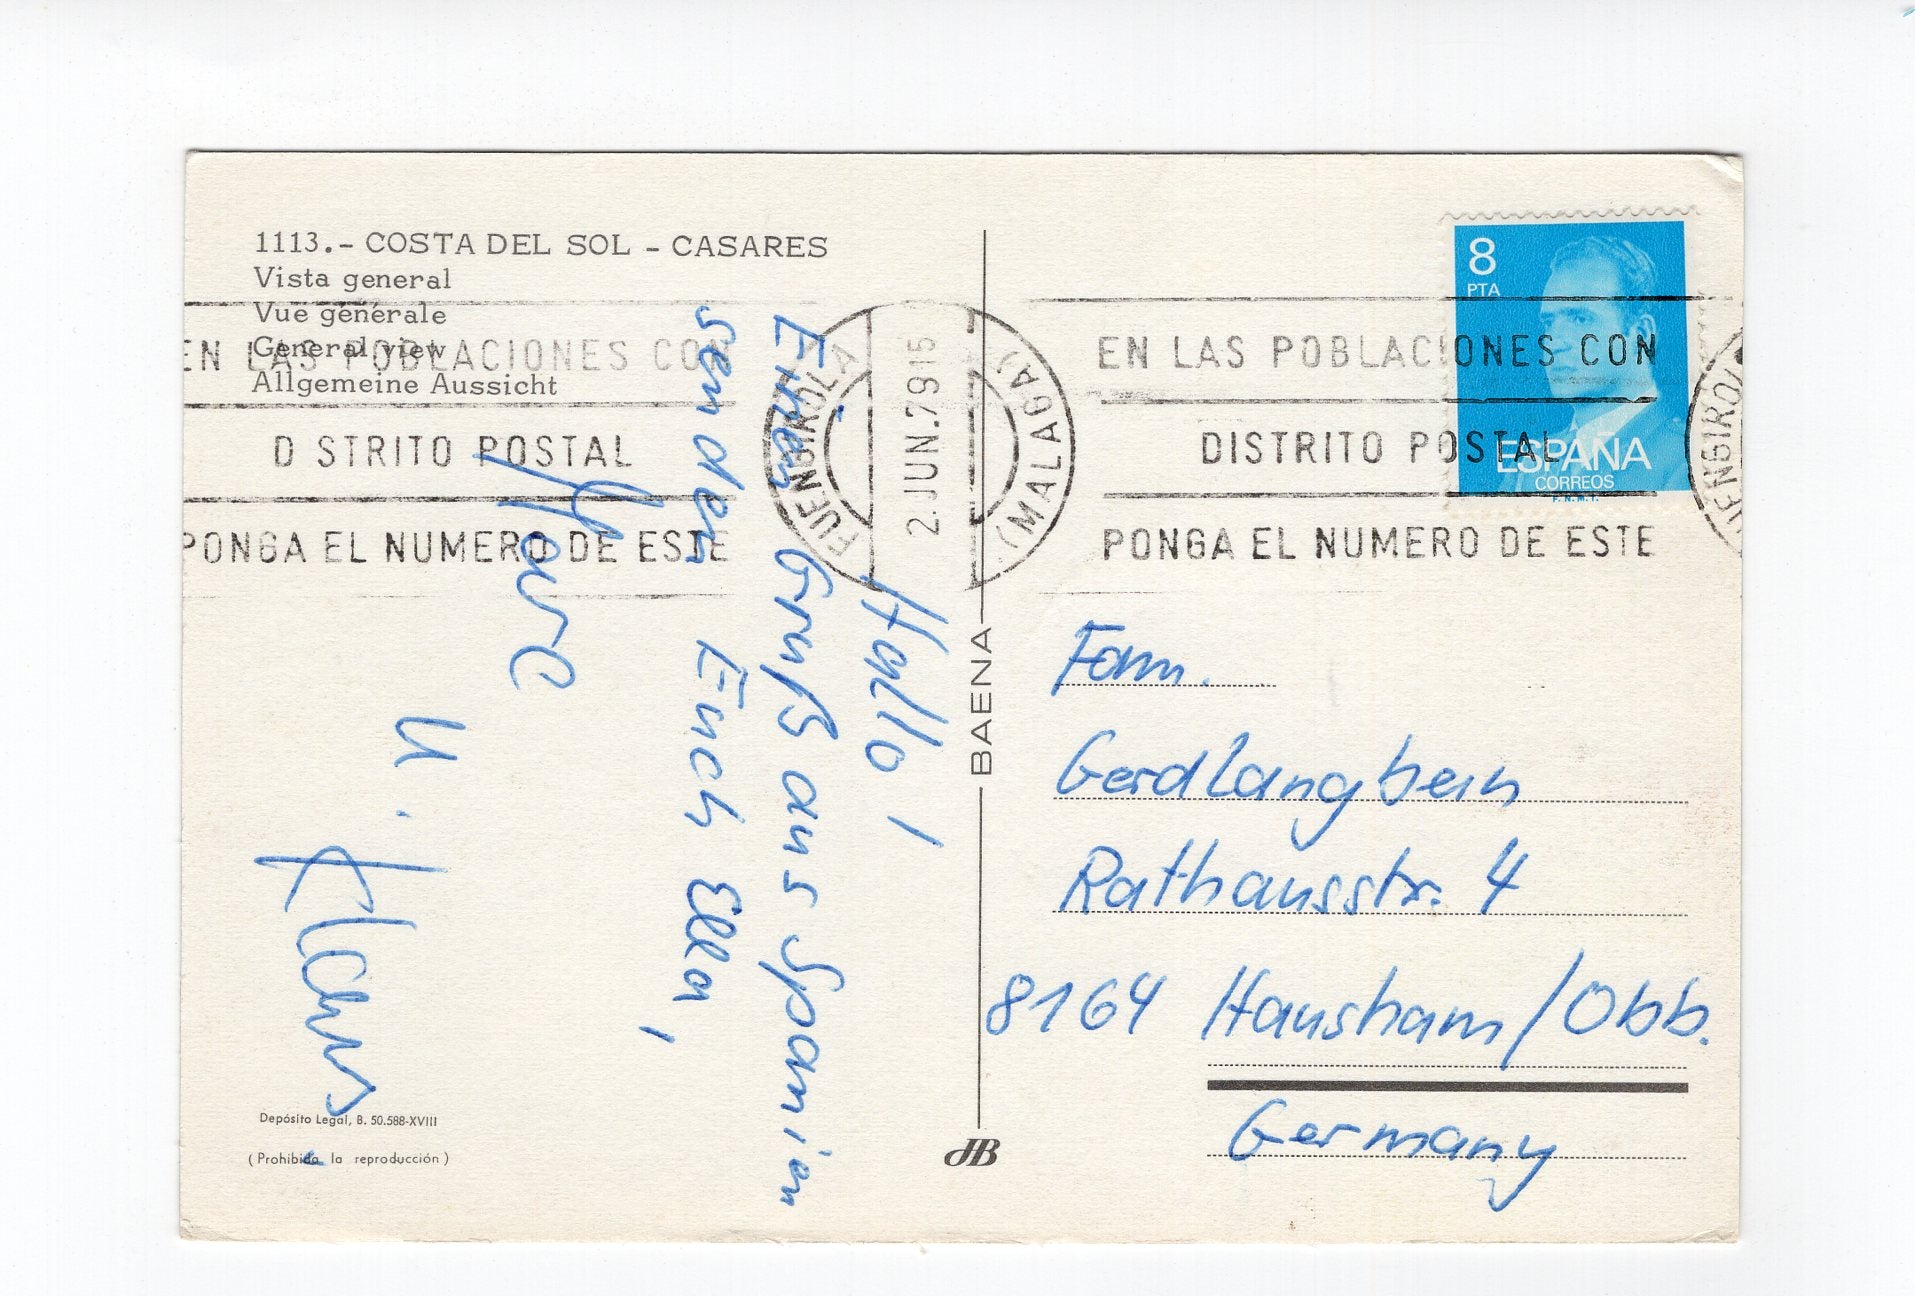 1113.- COSTA DEL SOL - CASARES
Vista general
Vue générale
General view
Allgemeine Aussicht
EN LAS POBLACIONES CON
D STRITO POSTAL
PONGA EL NUMERO DE ESTE
FUENGIROLA
2. JUN. 79 15
(MALAGA)
EN LAS POBLACIONES CON
DISTRITO POSTAL
PONGA EL NUMERO DE ESTE
FUENGIROLA
8
PTA
ESPAÑA
CORREOS
F.N.M.T.
Hallo!
Einen Gruß aus Spanien
senden Euch Ella,
u. Hans
BAENA
Fam.
Gerd Langbein
Rathausstr. 4
8164 Hausham/Obb.
Germany
Depósito Legal, B. 50.588-XVIII
(Prohibida la reproducción)
JB